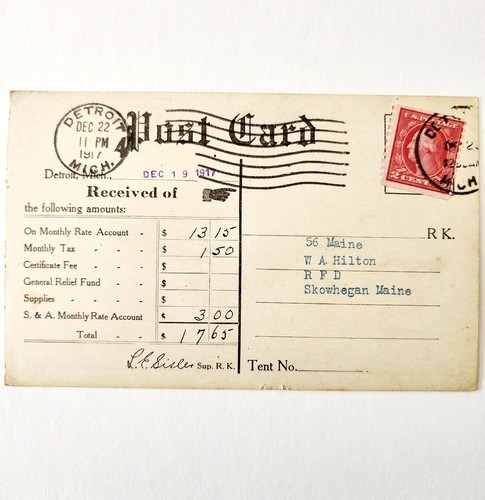 DETROIT
DEC 22
11 PM
1917
MICH.
4
Post Card
U.S. POSTAGE
2 CENTS 2
MICH
Detroit, Mich., DEC 19 1917
Received of
the following amounts:
On Monthly Rate Account - $ 13 15
Monthly Tax - - - $ 1 50
Certificate Fee - - $
General Relief Fund - - $
Supplies - - - - $
S. & A. Monthly Rate Account $ 3 00
Total - - $ 17 65
L.E. Sisler Sup. R. K.
R K.
56 Maine
W A Hilton
R F D
Skowhegan Maine
Tent No.